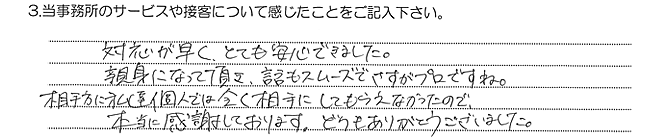 3.当事務所のサービスや接客について感じたことをご記入下さい。
対応が早く、とても安心できました。
親身になって頂き、話もスムーズでさすがプロですね。
相手方に私個人では全く相手にしてもらえなかったので、
本当に感謝しております。どうもありがとうございました。